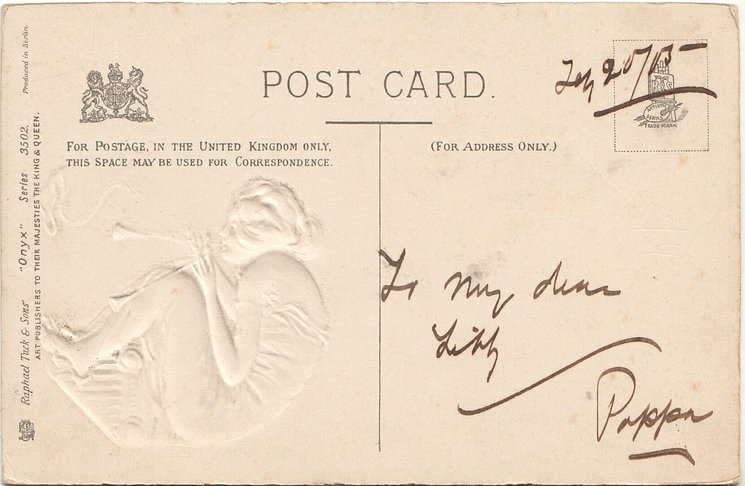 POST CARD.
Feb 20/05
FOR POSTAGE, IN THE UNITED KINGDOM ONLY,
THIS SPACE MAY BE USED FOR CORRESPONDENCE.
(FOR ADDRESS ONLY.)
TRADE MARK
To my dear
Libby
Poppa
Raphael Tuck & Sons' "Onyx" Series 3502.
ART PUBLISHERS TO THEIR MAJESTIES THE KING & QUEEN.
Produced in Berlin.